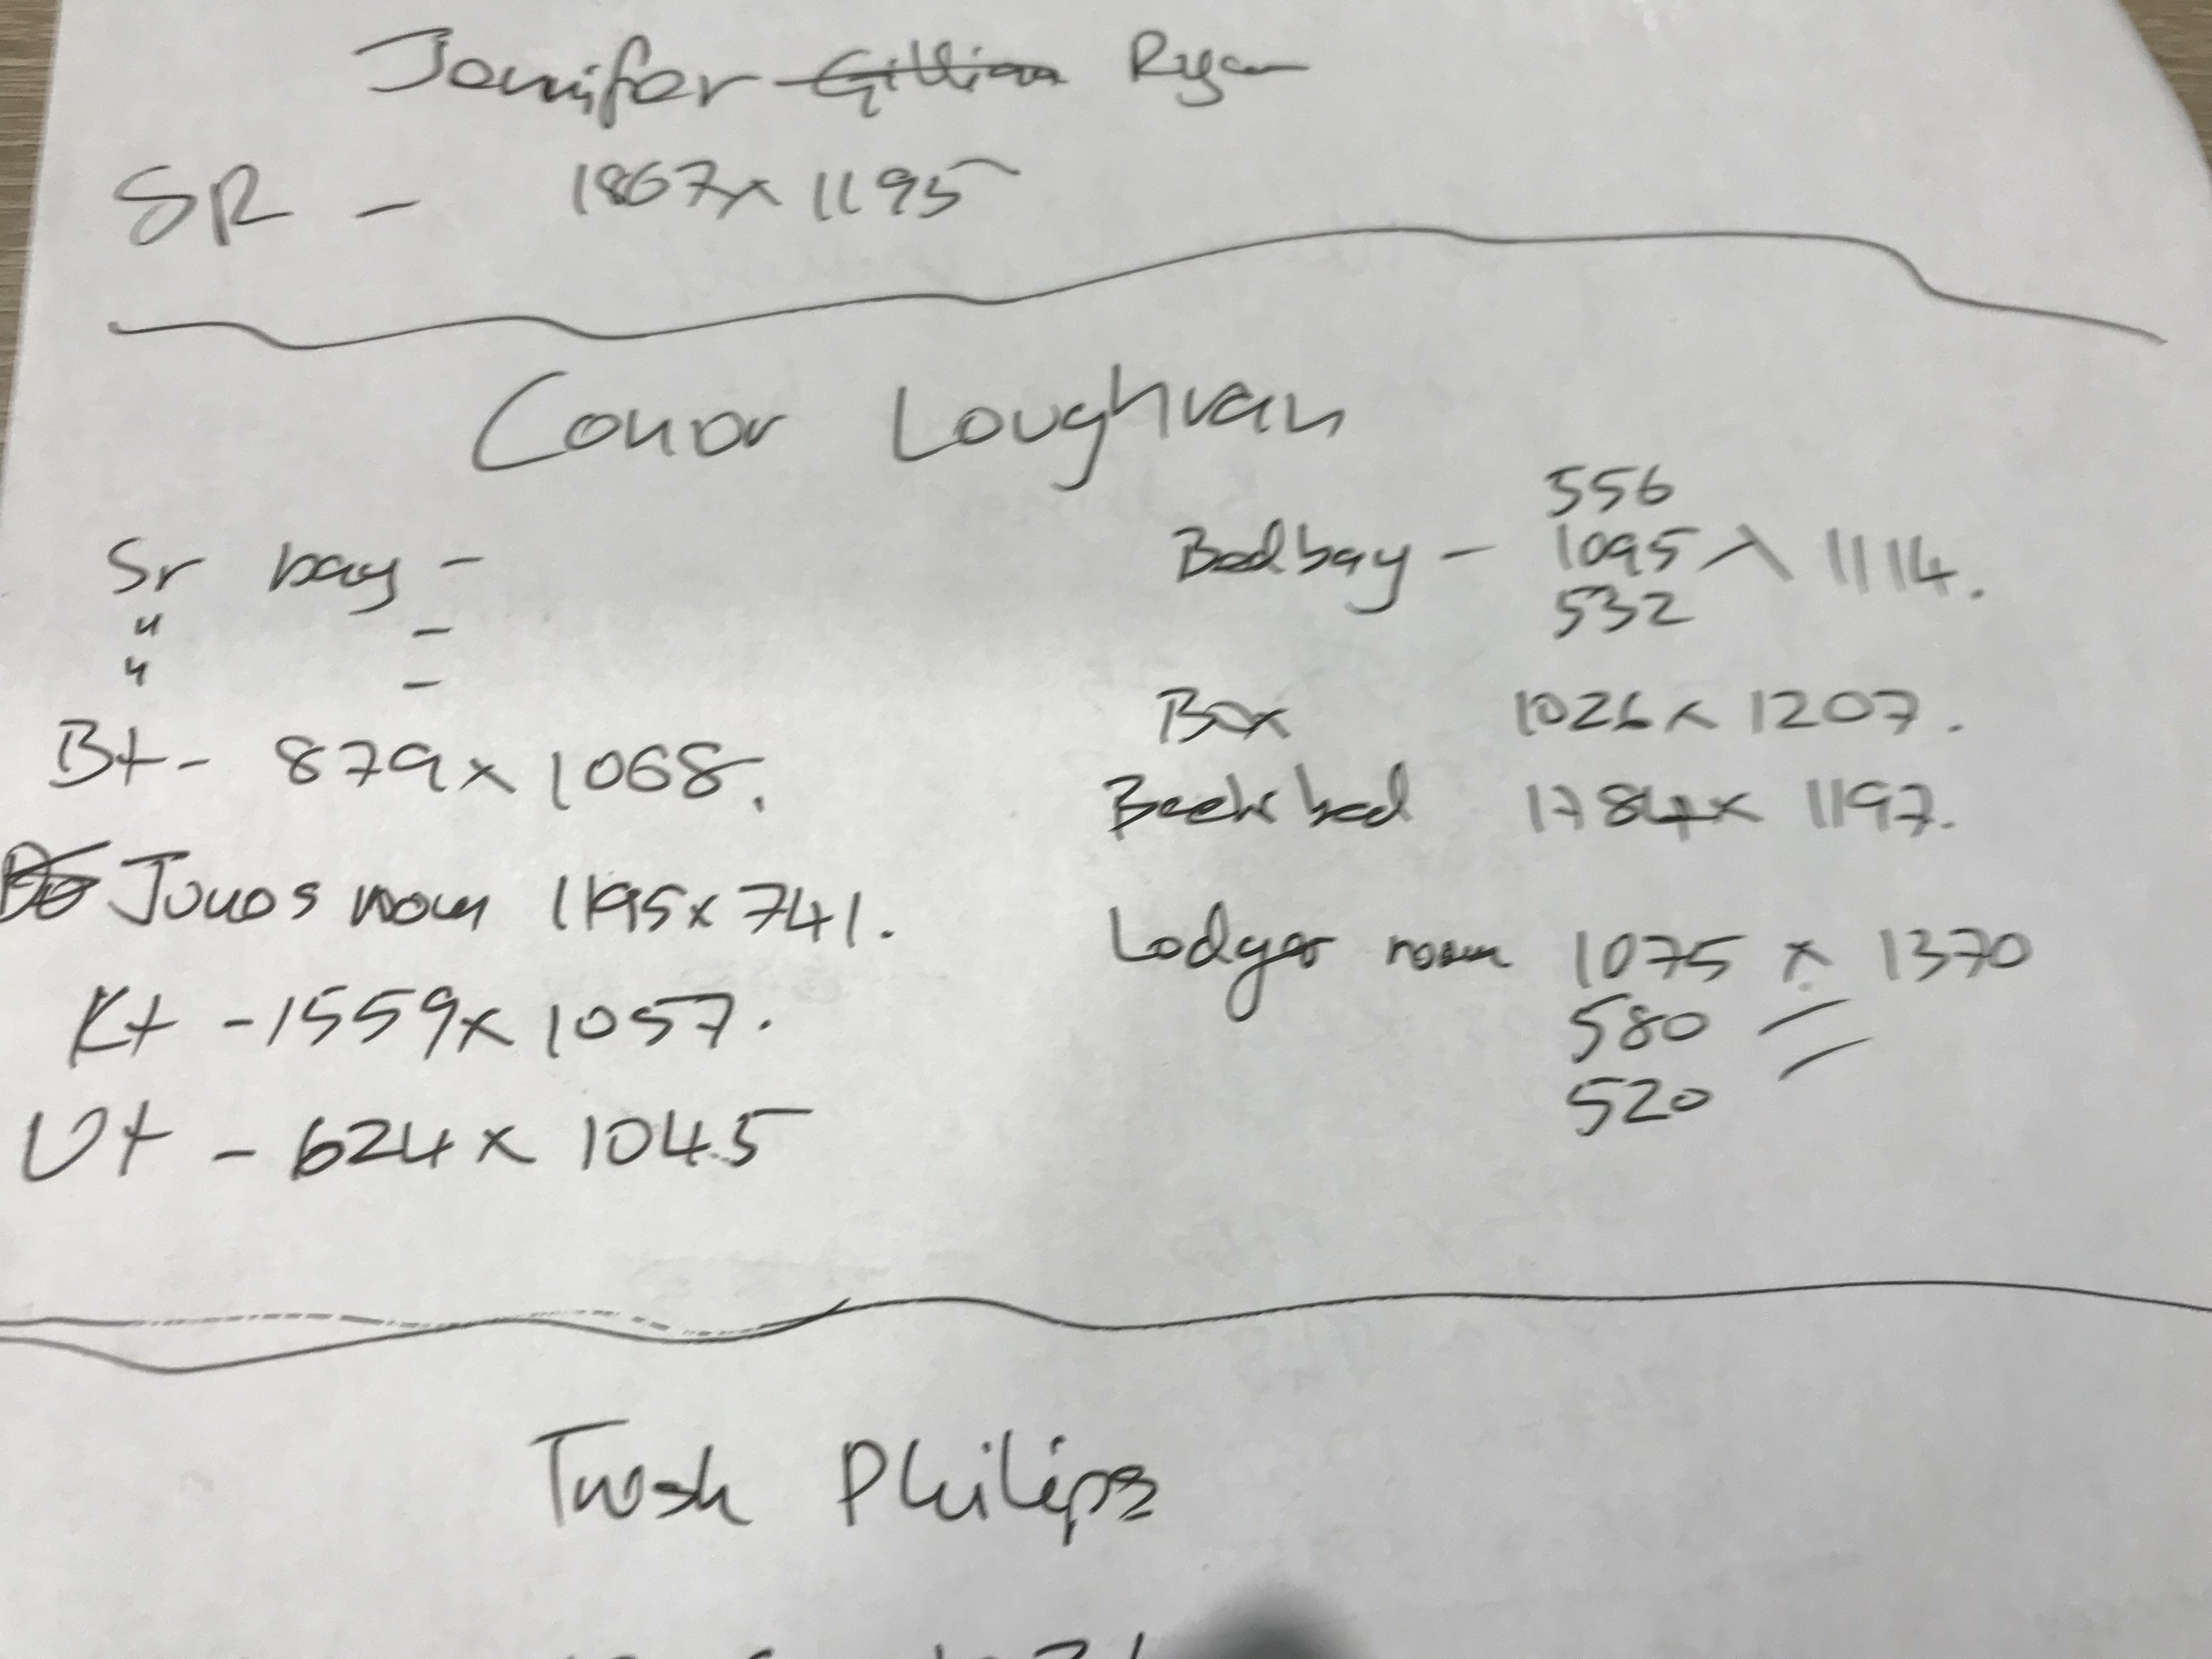 Jennifer Gillian Ryan
SR - 1867 x 1195
Conor Loughran
Sr bay -
" -
" -
Bt - 879 x 1068.
Junos room 1195 x 741.
Kt - 1559 x 1057.
Ut - 624 x 1045
Bed bay - 556
1095 x 1114.
532
Box 1026 x 1207.
Back bed 1784 x 1197.
Lodger room 1075 x 1370
580 "
520
Trish Philips